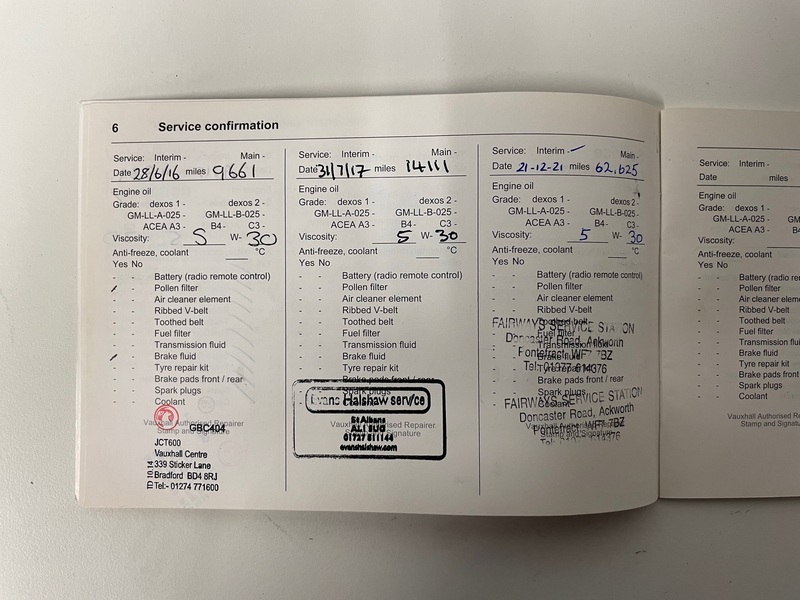 6 Service confirmation
Service: Interim - Main -
Date 28/6/16 miles 9661
Engine oil
Grade: dexos 1 - dexos 2 -
GM-LL-A-025 - GM-LL-B-025 -
ACEA A3 - B4- C3 -
Viscosity: 5 W- 30
Anti-freeze, coolant °C
Yes No
- - Battery (radio remote control)
- Pollen filter
- - Air cleaner element
- - Ribbed V-belt
- - Toothed belt
- - Fuel filter
- - Transmission fluid
- Brake fluid
- - Tyre repair kit
- - Brake pads front / rear
- - Spark plugs
- - Coolant
Vauxhall Authorised Repairer
Stamp and Signature
GBC404
JCT600
Vauxhall Centre
339 Sticker Lane
Bradford BD4 8RJ
Tel:- 01274 771600
Service: Interim - Main -
Date 31/7/17 miles 14111
Engine oil
Grade: dexos 1 - dexos 2 -
GM-LL-A-025 - GM-LL-B-025 -
ACEA A3 - B4- C3 -
Viscosity: 5 W- 30
Anti-freeze, coolant °C
Yes No
- - Battery (radio remote control)
- - Pollen filter
- - Air cleaner element
- - Ribbed V-belt
- - Toothed belt
- - Fuel filter
- - Transmission fluid
- - Brake fluid
- - Tyre repair kit
- - Brake pads front / rear
- - Spark plugs
Evans Halshaw service
St Albans
AL1 5UD
01727 811144
evanshalshaw.com
Vauxhall Authorised Repairer
Stamp and Signature
Service: Interim - Main -
Date 21-12-21 miles 62,625
Engine oil
Grade: dexos 1 - dexos 2 -
GM-LL-A-025 - GM-LL-B-025 -
ACEA A3 - B4- C3 -
Viscosity: 5 W- 30
Anti-freeze, coolant °C
Yes No
- - Battery (radio remote control)
- - Pollen filter
- - Air cleaner element
- - Ribbed V-belt
- - Toothed belt
- - Fuel filter
- - Transmission fluid
- - Brake fluid
- - Tyre repair kit
- - Brake pads front / rear
- - Spark plugs
- - Coolant
FAIRWAYS SERVICE STATION
Doncaster Road, Ackworth
Pontefract. WF7 7BZ
Tel: 01977 614376
FAIRWAYS SERVICE STATION
Doncaster Road, Ackworth
Pontefract. WF7 7BZ
Tel: 01977 614376
Service: Interim -
Date miles
Engine oil
Grade: dexos 1 -
GM-LL-A-025 - GM
ACEA A3 -
Viscosity:
Anti-freeze, coolant
Yes No
- - Battery (radio remo
- - Pollen filter
- - Air cleaner eleme
- - Ribbed V-belt
- - Toothed belt
- - Fuel filter
- - Transmission flui
- - Brake fluid
- - Tyre repair kit
- - Brake pads front
- - Spark plugs
- - Coolant
Vauxhall Authorised R
Stamp and Signatu